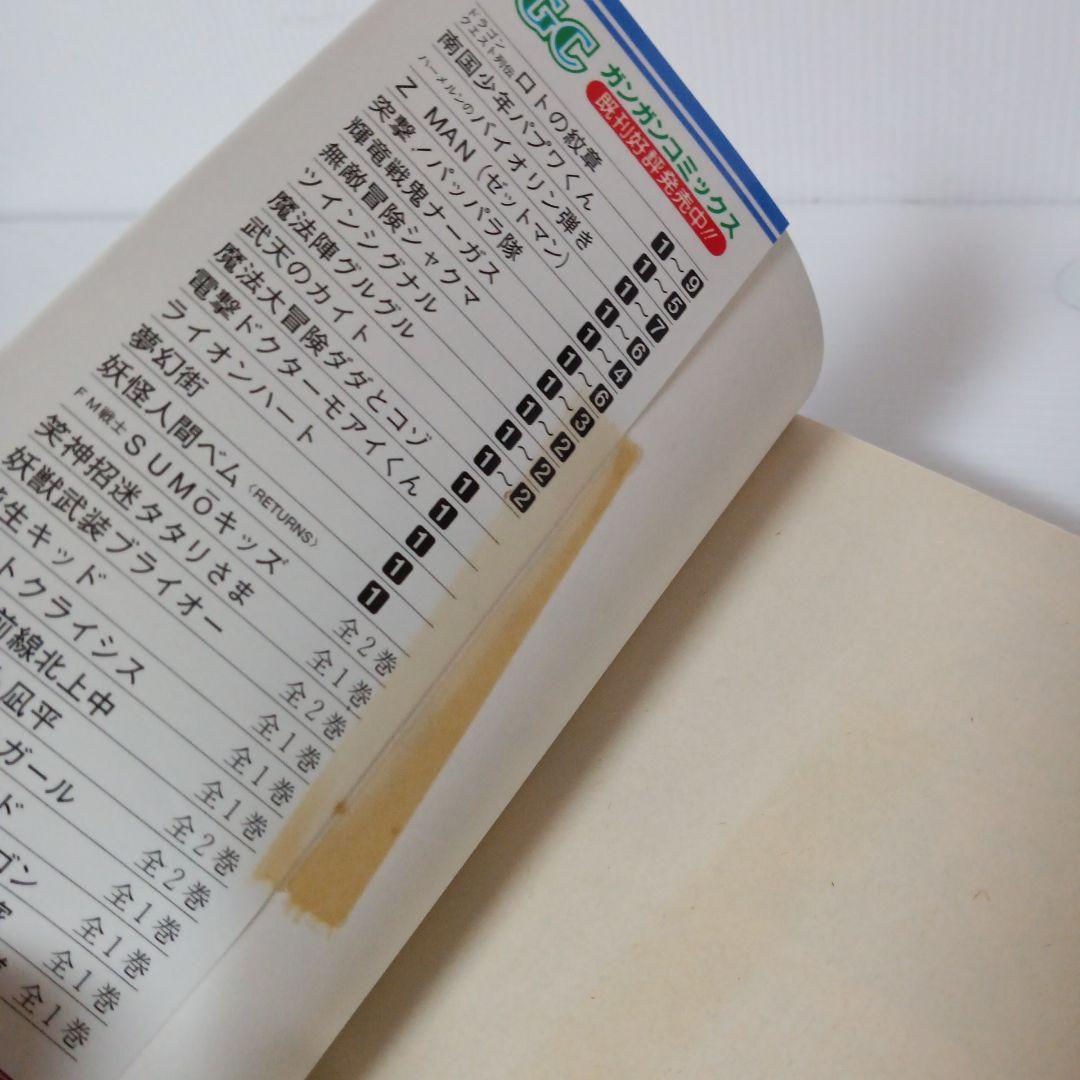 GC ガンガンコミックス
既刊好評発売中!!
ドラゴンクエスト列伝 ロトの紋章 1~9
南国少年パプワくん 1~5
ハーメルンのバイオリン弾き 1~7
Z MAN(ゼットマン) 1~6
突撃!パッパラ隊 1~4
輝竜戦鬼ナーガス 1~6
無敵冒険シャクマ 1~3
ツインシグナル 1~2
魔法陣グルグル 1~2
武天のカイト 1~2
魔法大冒険ダダとコゾ 1
電撃ドクターモアイくん 1
ライオンハート 1
夢幻街 1
妖怪人間ベム〈RETURNS〉 1
FM戦士SUMŌキッズ 全2巻
笑神招迷タタリさま 全1巻
妖獣武装ブライオー 全2巻
生キッド 全1巻
トクライシス 全1巻
前線北上中 全1巻
凪平 全2巻
ガール 全2巻
ド 全1巻
ゴン 全1巻
全1巻
全1巻